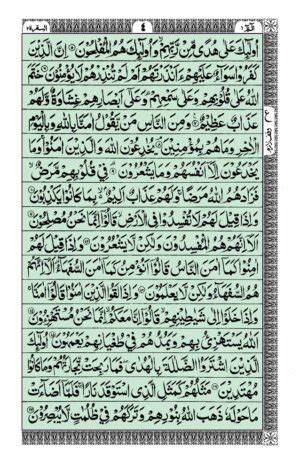 البقرة ٢
٤
الٓمّٓ ١
اُولٰٓئِكَ عَلٰى هُدًى مِّنْ رَّبِّهِمْ وَاُولٰٓئِكَ هُمُ الْمُفْلِحُوْنَ ۝ اِنَّ الَّذِيْنَ
كَفَرُوْا سَوَآءٌ عَلَيْهِمْ ءَاَنْذَرْتَهُمْ اَمْ لَمْ تُنْذِرْهُمْ لَا يُؤْمِنُوْنَ ۝ خَتَمَ
اللّٰهُ عَلٰى قُلُوْبِهِمْ وَعَلٰى سَمْعِهِمْ وَعَلٰٓى اَبْصَارِهِمْ غِشَاوَةٌ وَّلَهُمْ
عَذَابٌ عَظِيْمٌ ۝ وَمِنَ النَّاسِ مَنْ يَّقُوْلُ اٰمَنَّا بِاللّٰهِ وَبِالْيَوْمِ
الْاٰخِرِ وَمَا هُمْ بِمُؤْمِنِيْنَ ۝ يُخٰدِعُوْنَ اللّٰهَ وَالَّذِيْنَ اٰمَنُوْا وَمَا
يَخْدَعُوْنَ اِلَّآ اَنْفُسَهُمْ وَمَا يَشْعُرُوْنَ ۝ فِيْ قُلُوْبِهِمْ مَّرَضٌ
فَزَادَهُمُ اللّٰهُ مَرَضًا وَلَهُمْ عَذَابٌ اَلِيْمٌۢ بِمَا كَانُوْا يَكْذِبُوْنَ ۝
وَاِذَا قِيْلَ لَهُمْ لَا تُفْسِدُوْا فِى الْاَرْضِ قَالُوْٓا اِنَّمَا نَحْنُ مُصْلِحُوْنَ ۝
اَلَآ اِنَّهُمْ هُمُ الْمُفْسِدُوْنَ وَلٰكِنْ لَّا يَشْعُرُوْنَ ۝ وَاِذَا قِيْلَ لَهُمْ
اٰمِنُوْا كَمَآ اٰمَنَ النَّاسُ قَالُوْٓا اَنُؤْمِنُ كَمَآ اٰمَنَ السُّفَهَآءُ اَلَآ اِنَّهُمْ
هُمُ السُّفَهَآءُ وَلٰكِنْ لَّا يَعْلَمُوْنَ ۝ وَاِذَا لَقُوا الَّذِيْنَ اٰمَنُوْا قَالُوْٓا اٰمَنَّا
وَاِذَا خَلَوْا اِلٰى شَيٰطِيْنِهِمْ قَالُوْٓا اِنَّا مَعَكُمْ اِنَّمَا نَحْنُ مُسْتَهْزِءُوْنَ ۝
اَللّٰهُ يَسْتَهْزِئُ بِهِمْ وَيَمُدُّهُمْ فِيْ طُغْيَانِهِمْ يَعْمَهُوْنَ ۝ اُولٰٓئِكَ
الَّذِيْنَ اشْتَرَوُا الضَّلٰلَةَ بِالْهُدٰى فَمَا رَبِحَتْ تِّجَارَتُهُمْ وَمَا كَانُوْا
مُهْتَدِيْنَ ۝ مَثَلُهُمْ كَمَثَلِ الَّذِى اسْتَوْقَدَ نَارًا فَلَمَّآ اَضَآءَتْ
مَا حَوْلَهٗ ذَهَبَ اللّٰهُ بِنُوْرِهِمْ وَتَرَكَهُمْ فِيْ ظُلُمٰتٍ لَّا يُبْصِرُوْنَ ۝